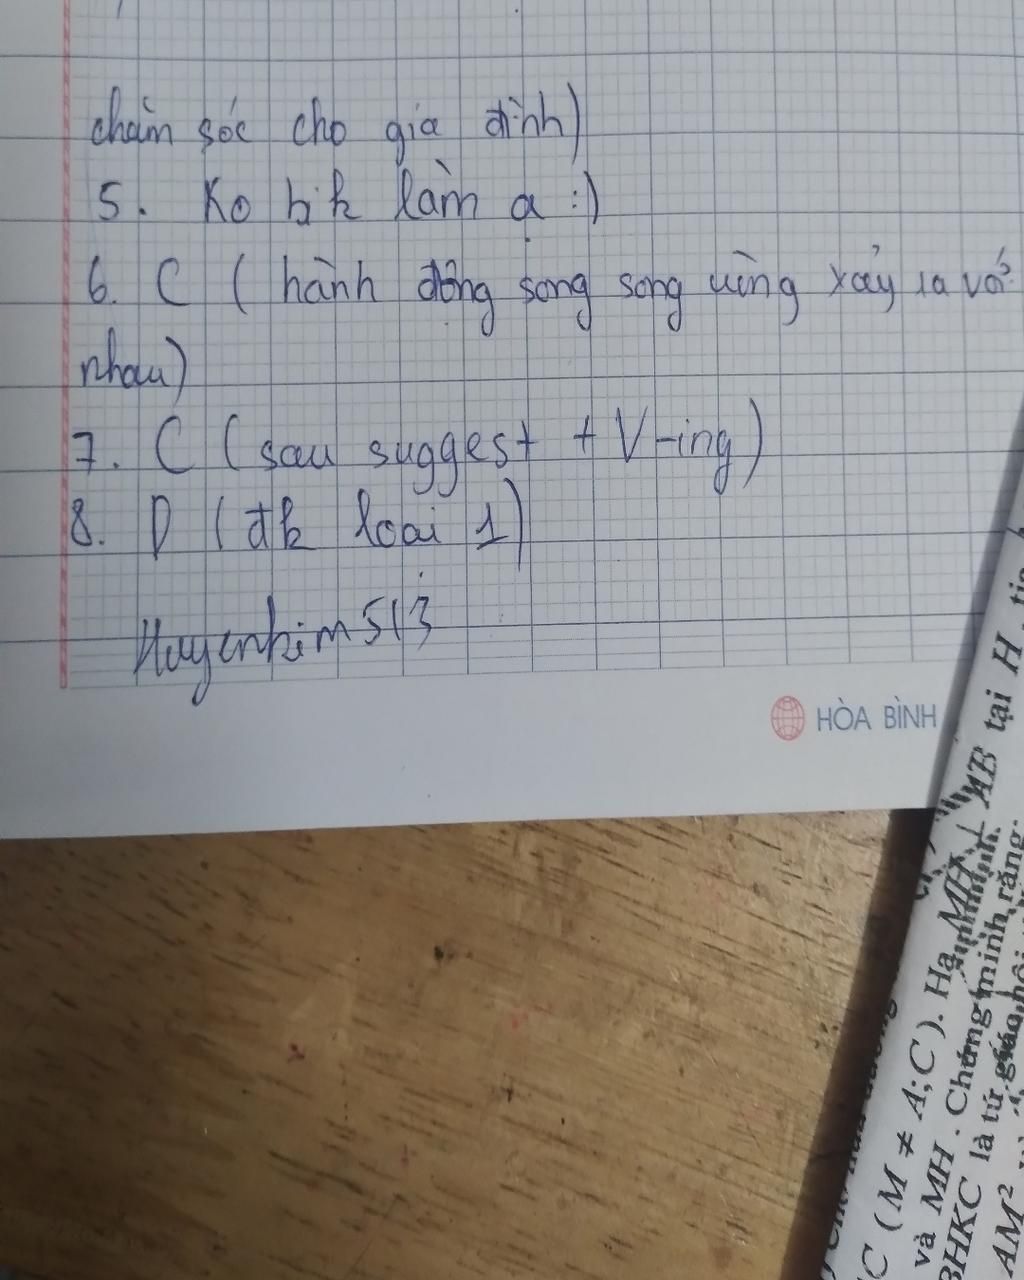 chăm sóc cho gia đình)
5. Ko bik làm ạ :)
6. C ( hành động song song cùng xảy ra với
nhau)
7. C ( sau suggest + V-ing)
8. D ( đk loại 1)
Huyenkim513
HÒA BÌNH
AB tại H
C (M ≠ A;C). Hạ MH ⊥
và MH. Chứng minh rằng:
BHKC là tứ giác nội
AM²